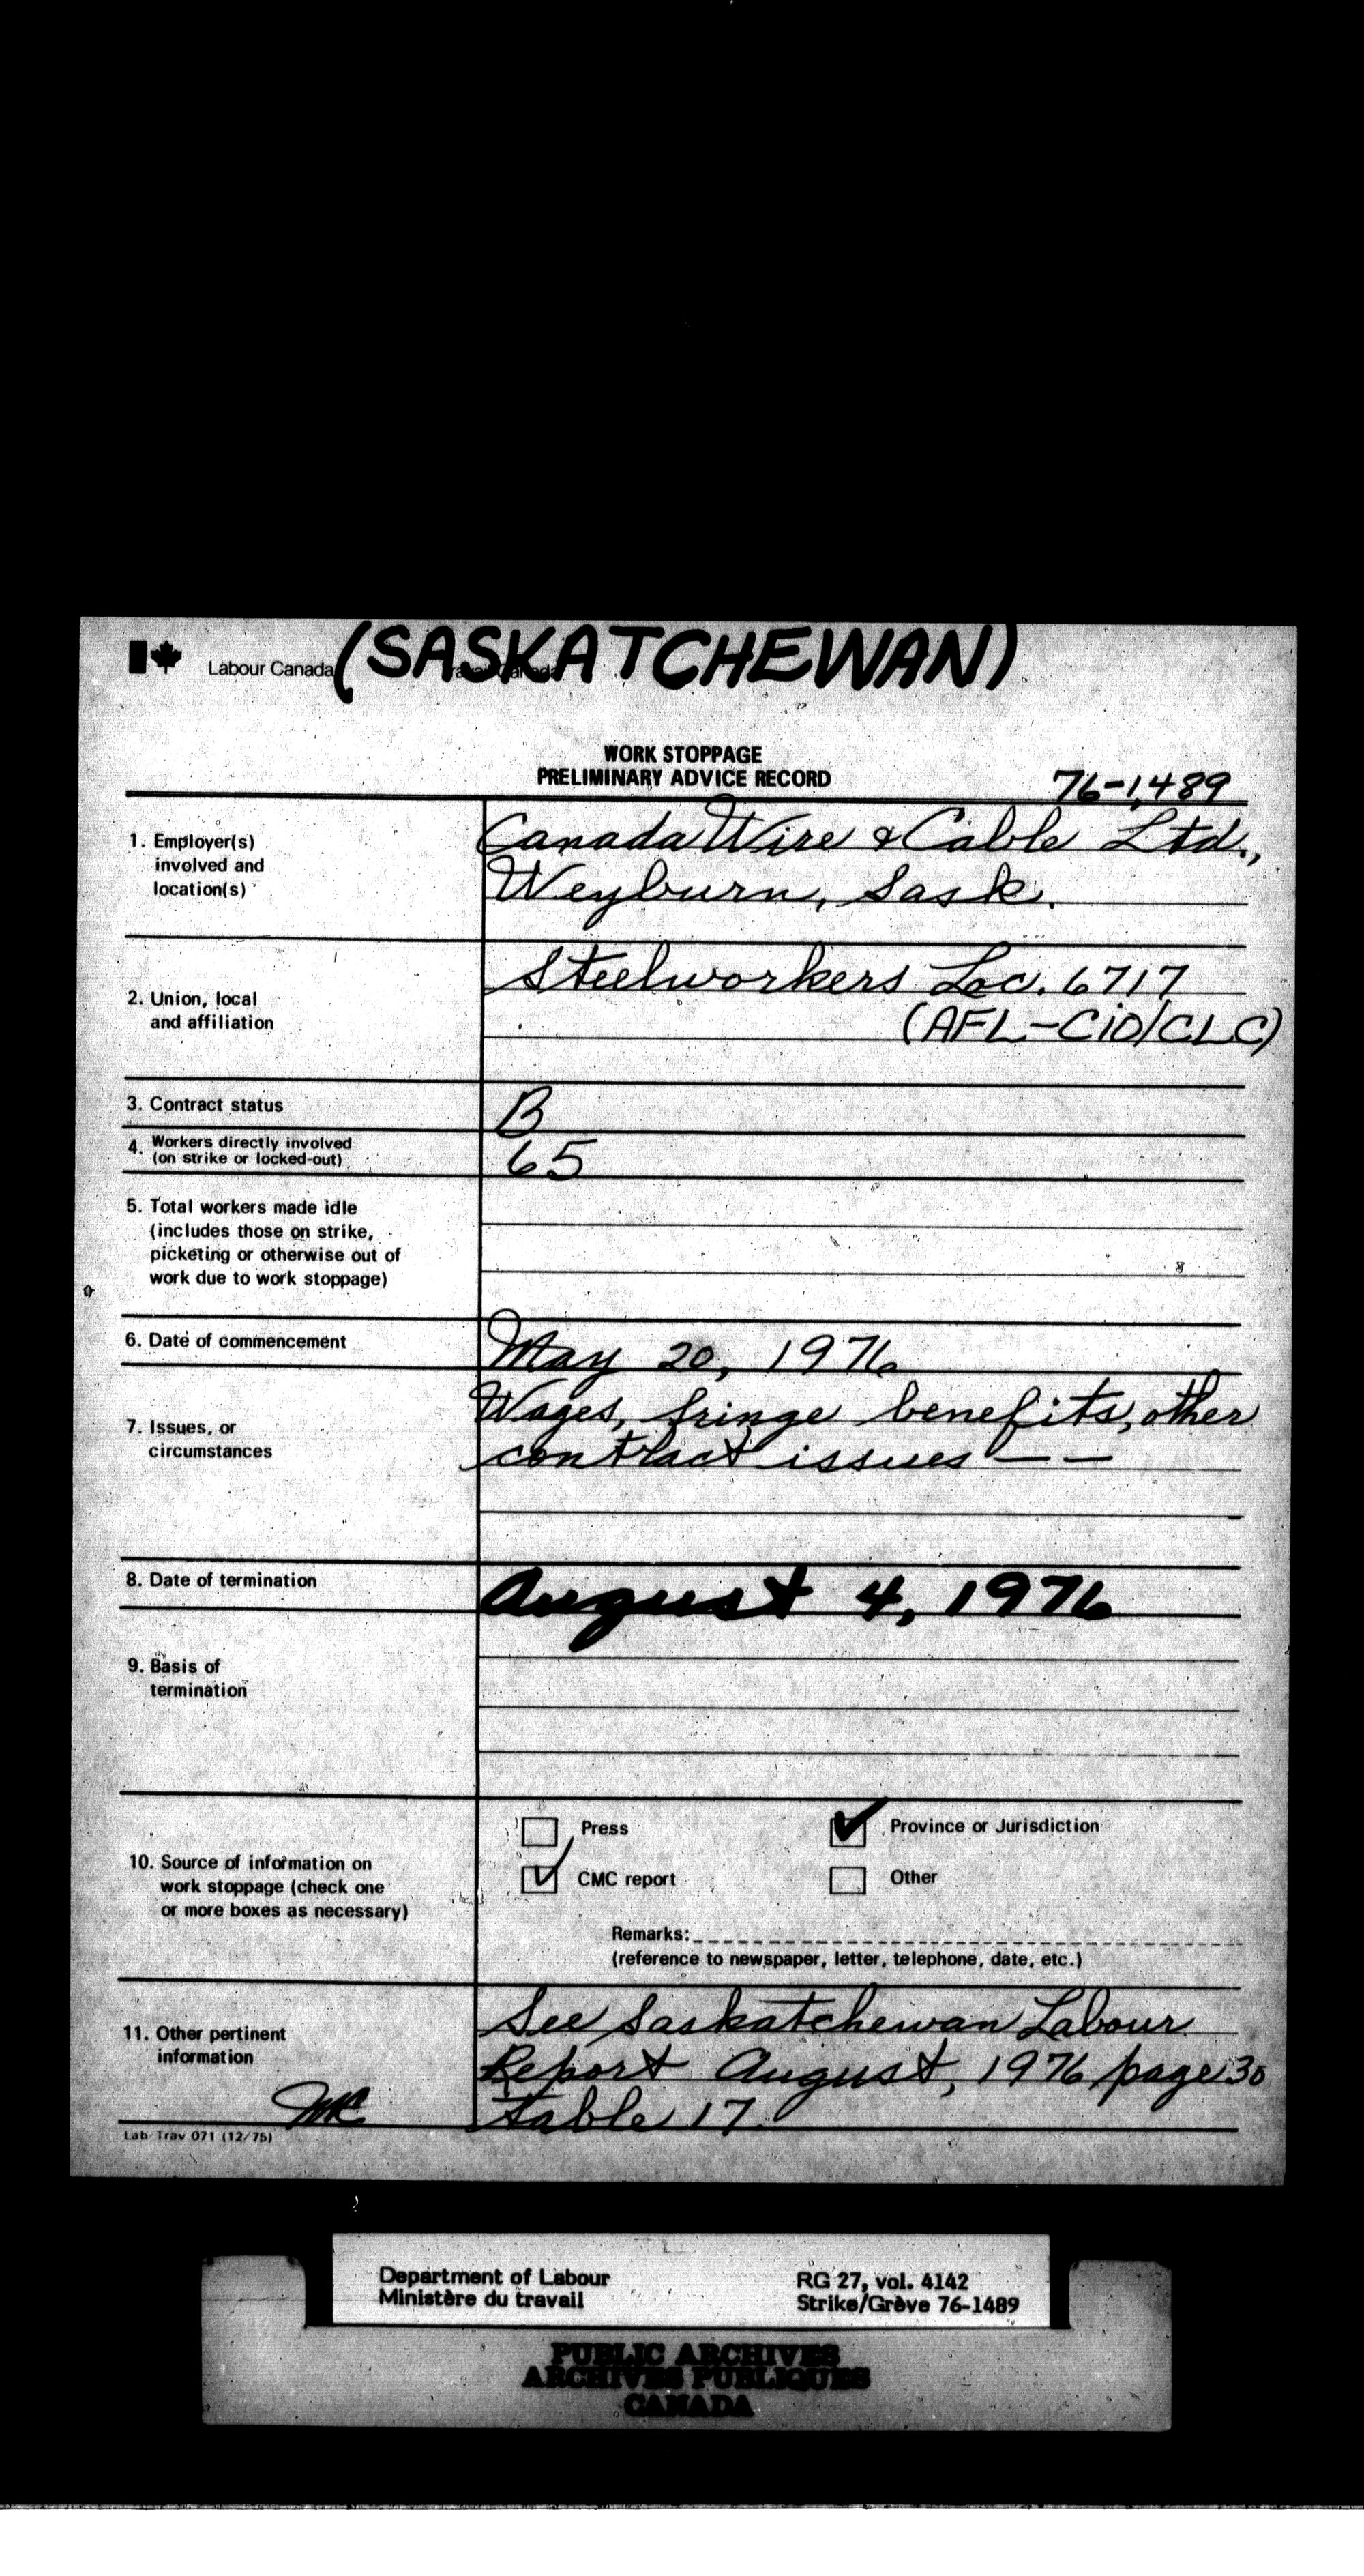 Labour Canada
(SASKATCHEWAN)
WORK STOPPAGE
PRELIMINARY ADVICE RECORD
76-1,489
1. Employer(s)
involved and
location(s)
Canada Wire & Cable Ltd.,
Weyburn, Sask.
2. Union, local
and affiliation
Steelworkers Loc. 6717
(AFL-CiO/CLC)
3. Contract status
B
4. Workers directly involved
(on strike or locked-out)
65
5. Total workers made idle
(includes those on strike,
picketing or otherwise out of
work due to work stoppage)
6. Date of commencement
May 20, 1976
7. Issues, or
circumstances
Wages, fringe benefits, other
contract issues — —
8. Date of termination
August 4, 1976
9. Basis of
termination
10. Source of information on
work stoppage (check one
or more boxes as necessary)
Press
Province or Jurisdiction
CMC report
Other
Remarks:
(reference to newspaper, letter, telephone, date, etc.)
11. Other pertinent
information
See Saskatchewan Labour
Report August, 1976 page 30
table 17.
Lab Trav 071 (12/75)
Department of Labour
Ministère du travail
RG 27, vol. 4142
Strike/Grève 76-1489
PUBLIC ARCHIVES
ARCHIVES PUBLIQUES
CANADA